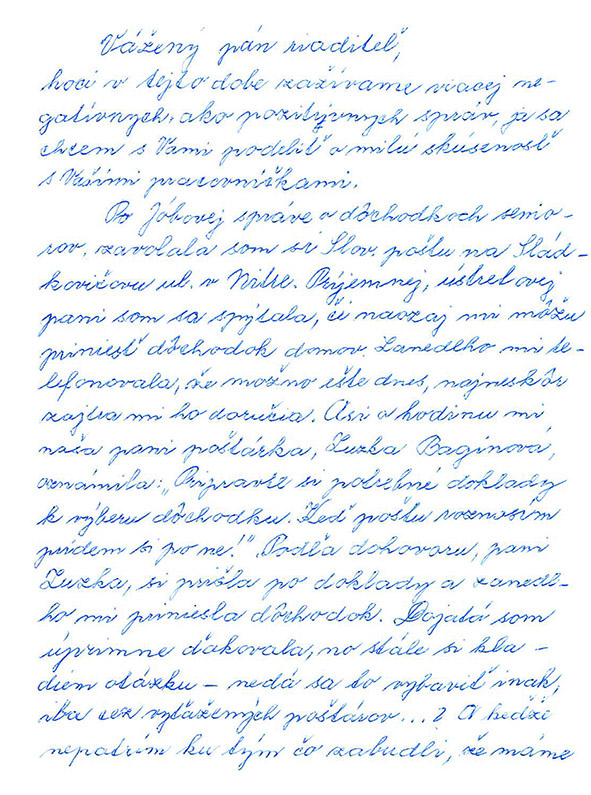 Vážený pán riaditeľ,
hoci v tejto dobe zažívame viacej ne-
gatívnych, ako pozitývnych správ, ja sa
chcem s Vami podeliť o milú skúsenosť
s Vašimi pracovníčkami.
Po Jóbovej správe o dôchodkoch senio-
rov, zavolala som si Slov. poštu na Slád-
kovičovu ul. v Nitre. Príjemnej, ústretovej
pani som sa spýtala, či naozaj mi môžu
priniesť dôchodok domov. Zanedlho mi te-
lefonovala, že možno ešte dnes, najneskôr
zajtra mi ho doručia. Asi o hodinu mi
naša pani poštárka, Zuzka Bagínová,
oznámila: „Pripravte si potrebné doklady
k výberu dôchodku. Keď poštu roznosím
prídem si po ne!" Podľa dohovoru, pani
Zuzka, si prišla po doklady a zanedl-
ho mi priniesla dôchodok. Dojatá som
úprimne ďakovala, no stále si kla-
diem otázku - nedá sa to vybaviť inak,
iba cez vyťažených poštárov...? A keďže
nepatrím ku tým čo zabudli, že máme